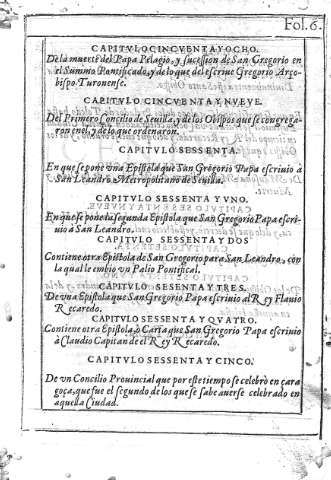 Fol. 6.
CAPITVLO CINCVENTA Y OCHO.
De la muerte del Papa Pelagio, y sucession de San Gregorio en
el Summo Pontificado, y de lo que del escriue Gregorio Arço-
bispo Turonense.
CAPITVLO CINCVENTA Y NVEVE.
Del Primero Concilio de Seuilla, y de los Obispos que se congrega-
ron en el, y de lo que ordenaron.
CAPITVLO SESSENTA.
En que se pone vna Epistola que San Gregorio Papa escriuio à
San Leandro Metropolitano de Seuilla.
CAPITVLO SESSENTA Y VNO.
En que se pone la segunda Epistola que San Gregorio Papa escri-
uio à San Leandro.
CAPITVLO SESSENTA Y DOS
Contiene otra Epistola de San Gregorio para San Leandro, con
la qual le embio vn Palio Pontifical.
CAPITVLO SESENTA Y TRES.
De vna Epistola que San Gregorio Papa escriuio al Rey Flauio
Recaredo.
CAPITVLO SESSENTA Y QVATRO.
Contiene otra Epistola, ò Carta que San Gregorio Papa escriuio
à Claudio Capitan de el Rey Recaredo.
CAPITVLO SESSENTA Y CINCO.
De vn Concilio Prouincial que por este tiempo se celebrò en çara
goça, que fue el segundo de los que se sabe auerse celebrado en
aquella Ciudad.